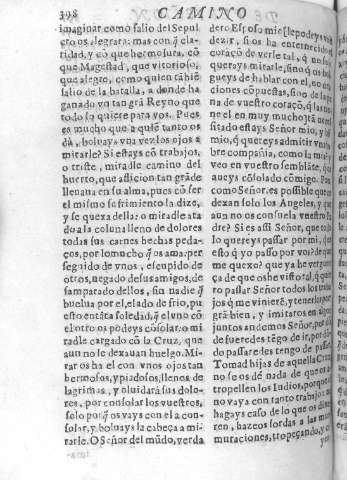 398
CAMINO
imaginar como salio del Sepul
cro os alegrara: mas con q̃ cla-
ridad, y cõ que hermosura, cõ
que Magestad, que vitorioso,
que alegre, como quien tãbiẽ
salio de la batalla, a donde ha
ganado vn tan grã Reyno que
todo lo quiere para vos. Pues
es mucho que a quiẽ tanto os
dà, boluays vna vez los ojos a
mirarle? Si estays cõ trabajos,
o triste, miralde camino del
huerto, que aflicion tan grãde
lleuaua en su alma, pues cõ ser
el mismo sufrimiento la dize,
y se quexa della: o miralde ata
do a la coluna lleno de dolores
todas sus carnes hechas peda-
ços, por lo mucho q̃ os ama: per
seguido de vnos, escupido de
otros, negado de sus amigos, de
samparado dellos, sin nadie q̃
buelua por el, elado de frio, pu
esto en tãta soledad, q̃ el vno cõ
el otro os podeys cõsolar: o mi
ralde cargado cõ la Cruz, que
aun no le dexauan huelgo. Mi-
rar os ha el con vnos ojos tan
hermosos, y piadosos, llenos de
lagrimas, y oluidarà sus dolo-
res, por consolar los vuestros,
solo porq̃ os vays con el a con-
solar, y boluays la cabeça a mi-
rarle. O Señor del mũdo, verda
dero Esposo mio (le podeys vos
dezir, si os ha enternecido el
coraçõ de verle tal, q̃ no solo
querays mirarle, sino q̃ os hol-
gueys de hablar con el, no ora
ciones cõpuestas, sino de la pe
na de vuestro coraçõ, q̃ las tie
ne el en muy mucho) tã necef
sitado estays Señor mio, y biẽ
mio, q̃ quereys admitir vna po
bre compañia, como la mia, y
veo en vuestro semblãte, que os
aueys cõsolado cõmigo. Pues
como Señor es possible que os
dexan solo los Angeles, y que
aun no os consuela vuestro Pa
dre? Si es assi Señor, que todo
lo quereys passar por mi, que es
esto q̃ yo passo por vos? de que
me quexo? que ya he verguen
ça de que os he visto tal, q̃ quie
ro passar Señor todos los traba
jos q̃ me vinierẽ, y tenerlos por
grã bien, y imitaros en algo:
juntos andemos Señor, por don
de fueredes tẽgo de ir, por dõ-
de passaredes tengo de passar.
Tomad hijas de aquella Cruz,
no se os dè nada de que os a-
tropellen los Iudios, porque el
no vaya con tanto trabajo: no
hagays caso de lo que os dixe-
ren, hazeos sordas a las mur-
muraciones, tropeçando, y ca
yen